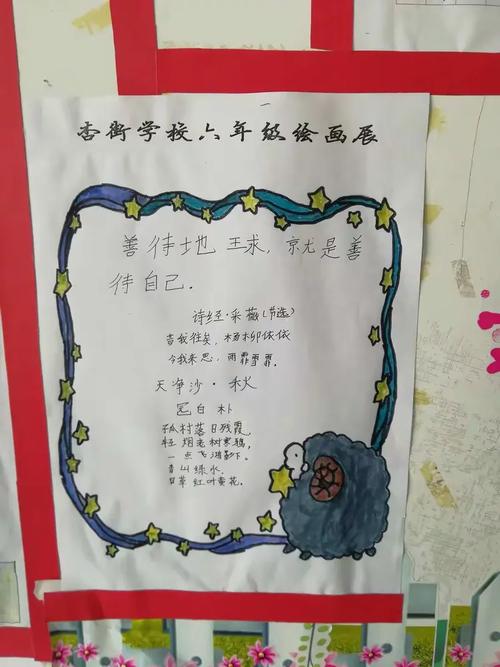 杏街学校六年级绘画展
善待地球,就是善
待自己.
诗经·采薇(节选)
昔我往矣,杨柳依依
今我来思,雨霏雪霏.
天净沙·秋
白朴
孤村落日残霞,
轻烟老树寒鸦,
一点飞鸿影下.
青山绿水.
白草红叶黄花.